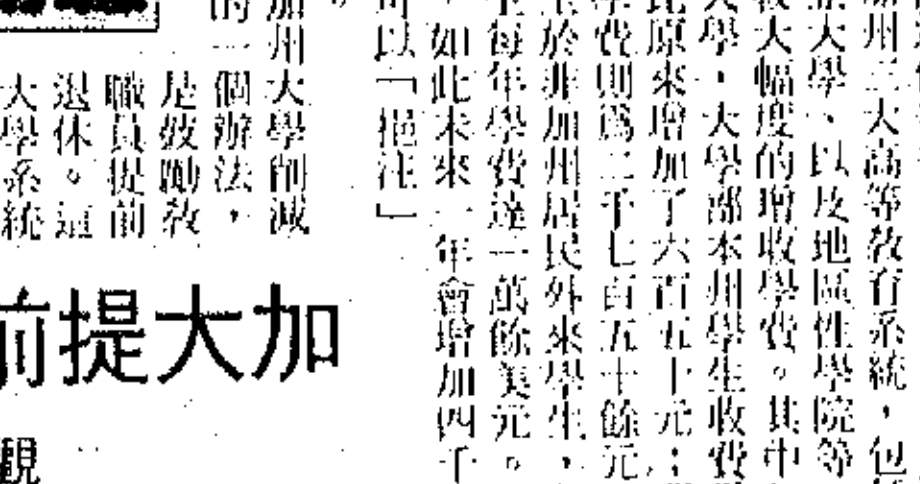 州三大高等教育系統，包
大學、以及地區性學院等
大幅度的增收學費。其中
大學，大學部本州學生收費
比原來增加了六百五十元；
學費則為二千七百五十餘元
於非加州居民外來學生，
每年學費達一萬餘美元。
如此未來一年會增加四千
可以「挹注」
加州大學削減
的一個辦法，
是鼓勵教
職員提前
退休。這
大學系統
加大提前
觀